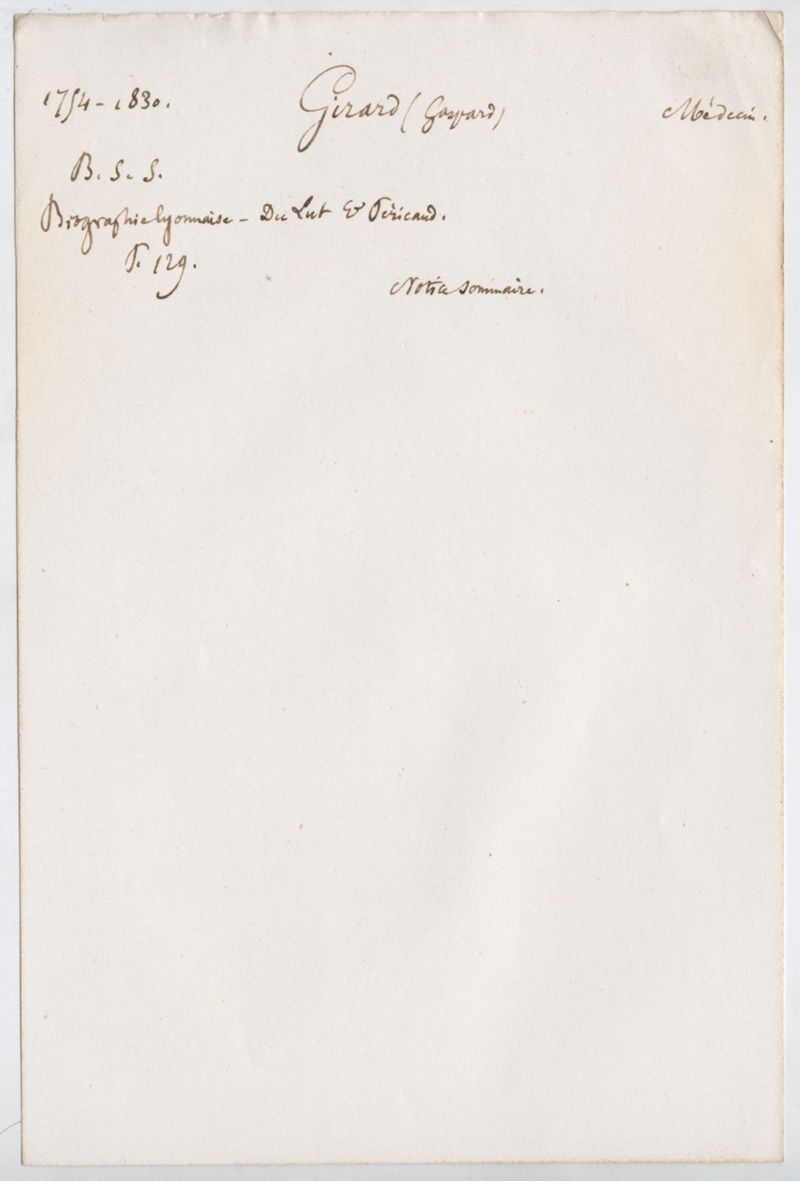 1754-1830. Girard (Gaspard) Médecin.
B. S. S.
Biographie lyonnaise - Du Lut & Péricaud.
P. 129.
Notice sommaire.